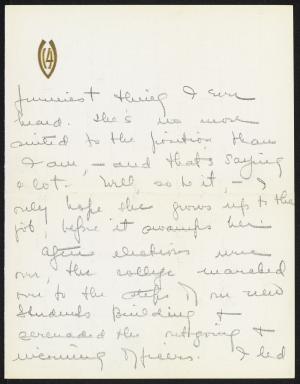 funniest thing I ever
heard. She's no more
suited to the position than
I am, – and that's saying
a lot. Well, so be it, – I
only hope she grows up to the
job, before it swamps her.
After elections were
over, the college marched
over to the steps of our new
Students Building &
serenaded the outgoing &
incoming officers. I led